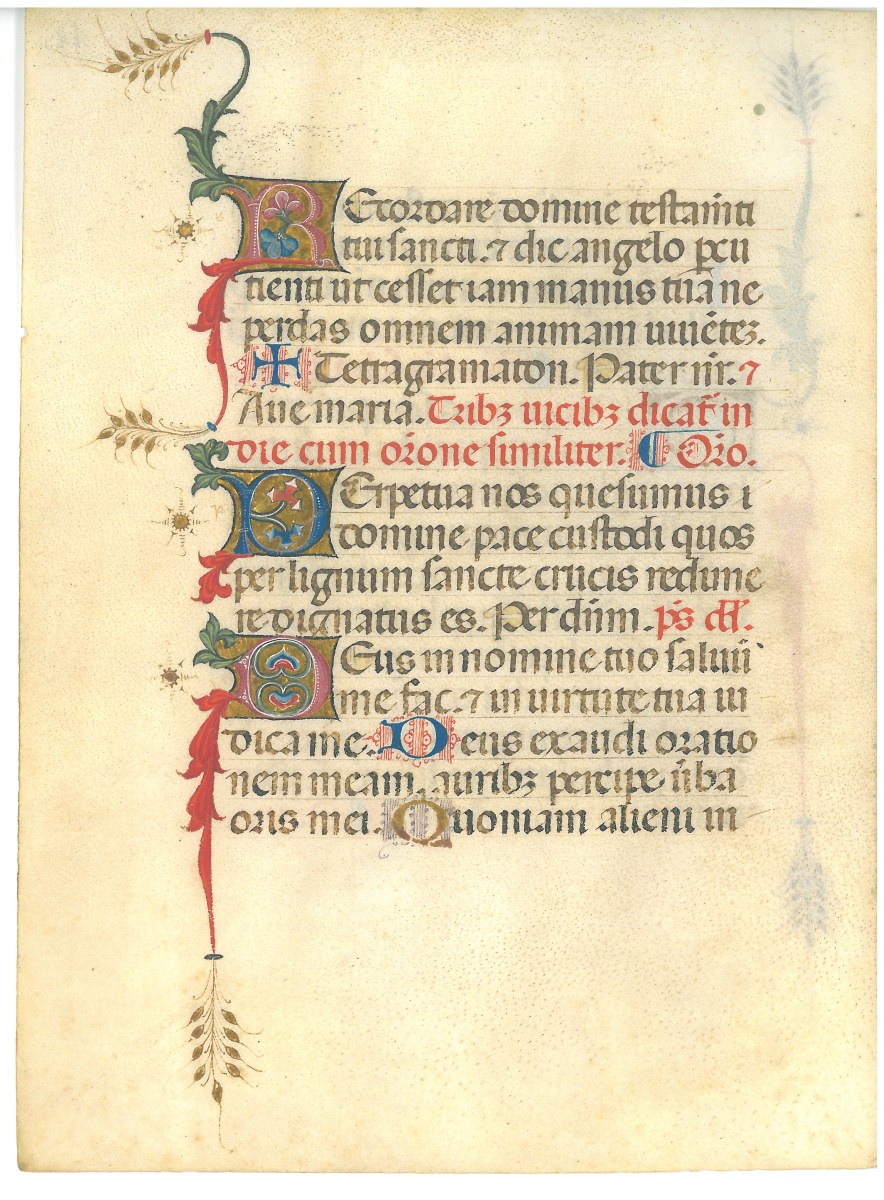 REcordare domine testam̄ti
tui sancti. ⁊ dic angelo ꝑcu
tienti ut cesset iam manus tua ne
perdas omnem animam uiuēteꝫ.
✠ Tetragramaton. Pater nr̄. ⁊
Aue maria. Tribꝫ uicibꝫ dicat̄ in
die cum or̄one similiter. Or̄o.
PErpetua nos quesumus
domine pace custodi quos
per lignum sancte crucis redime
re dignatus es. Per dn̄m. p̄s dd̄.
DEus in nomine tuo saluū
me fac. ⁊ in uirtute tua iu
dica me. Deus exaudi oratio
nem meam. auribꝫ percipe ūba
oris mei. Quoniam alieni in